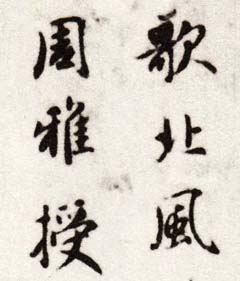 歌北風
周雅授